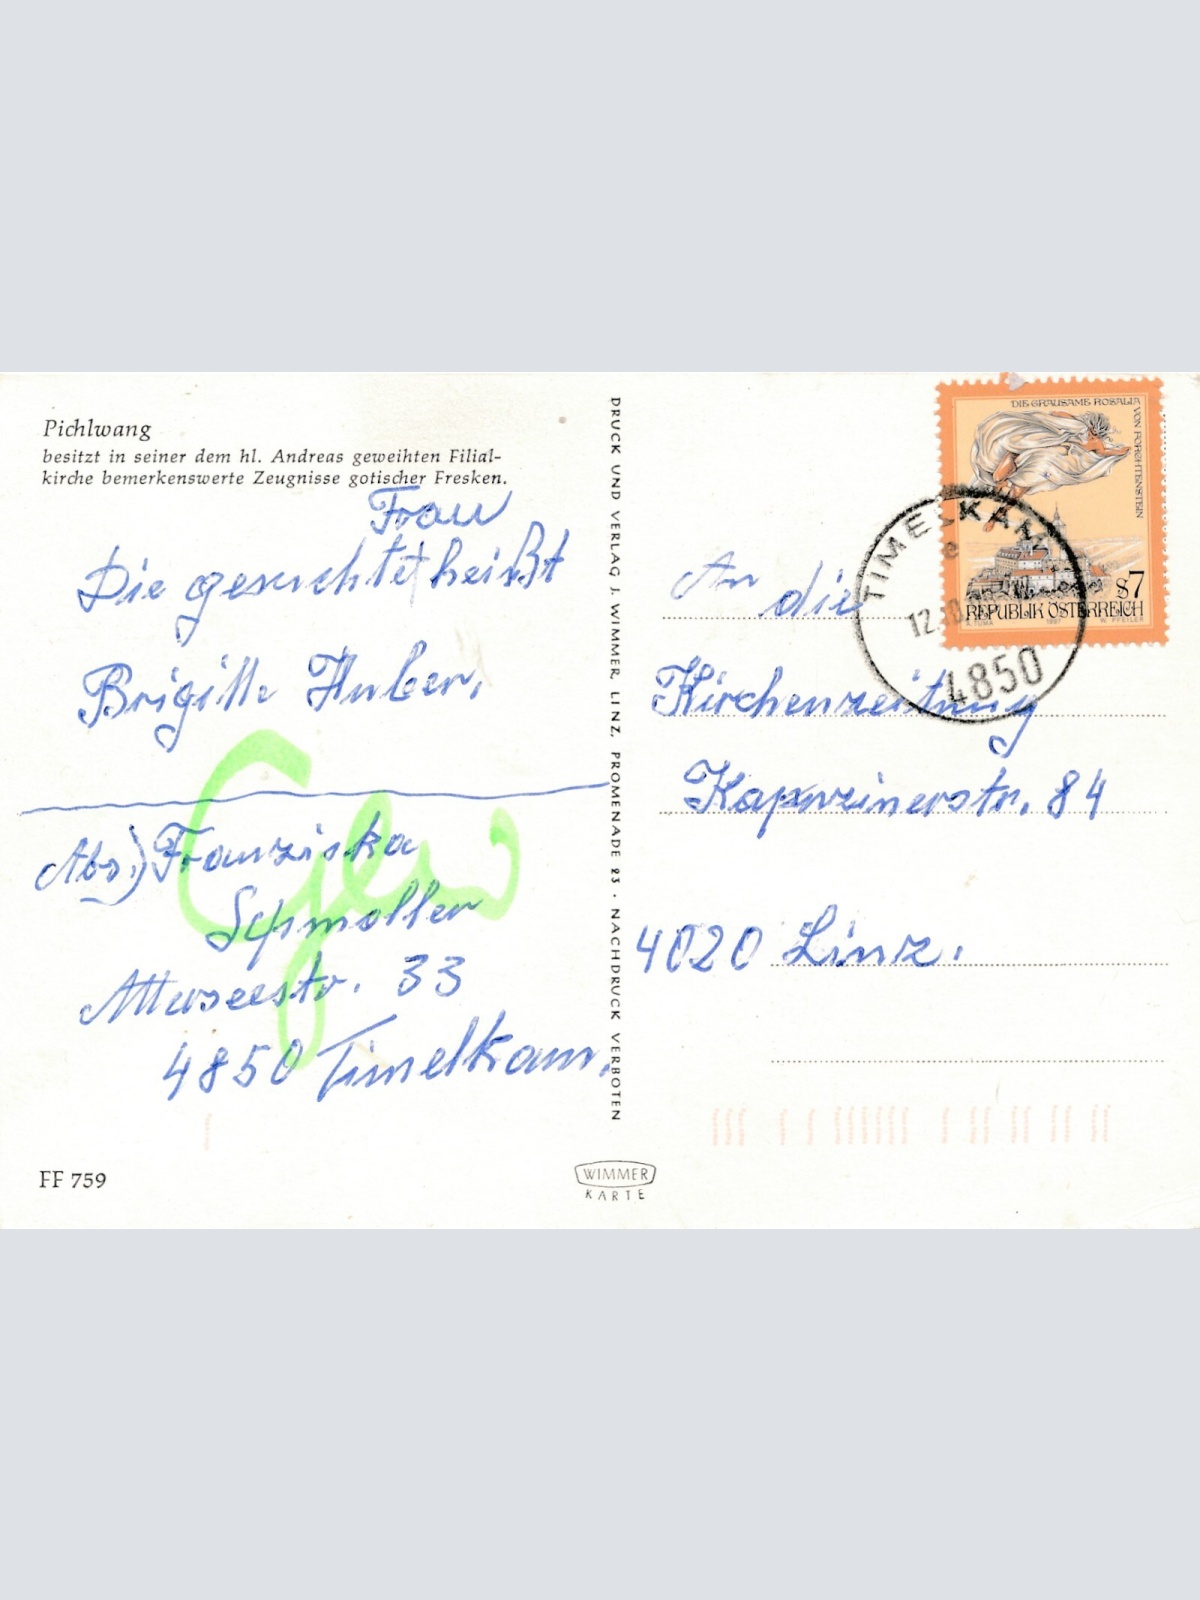 Pichlwang
besitzt in seiner dem hl. Andreas geweihten Filial-
kirche bemerkenswerte Zeugnisse gotischer Fresken.
Frau
Die gesuchte heißt
Brigitte Huber,
Abs.) Franziska
Schmoller
Atterseestr. 33
4850 Timelkam.
FF 759
DRUCK UND VERLAG J. WIMMER, LINZ, PROMENADE 23 · NACHDRUCK VERBOTEN
WIMMER
KARTE
DIE GRAUSAME ROSALIA
VON FORCHTENSTEIN
S7
REPUBLIK ÖSTERREICH
A. TUMA 1997 W. PFEILER
TIMELKAM
e
12.10
4850
An die
Kirchenzeitung
Kapuzinerstr. 84
4020 Linz.